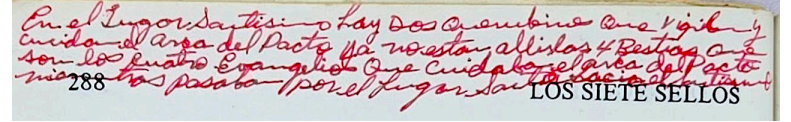 En el Lugar Santisimo hay Dos Querubines que vigilan y
cuidan el arca del Pacto ya no estan alli las 4 Bestias que
son los cuatro Evangelios que cuidaban el arca del Pacto
mientras pasaban por el Lugar Santo hacia el Santisimo
288 LOS SIETE SELLOS